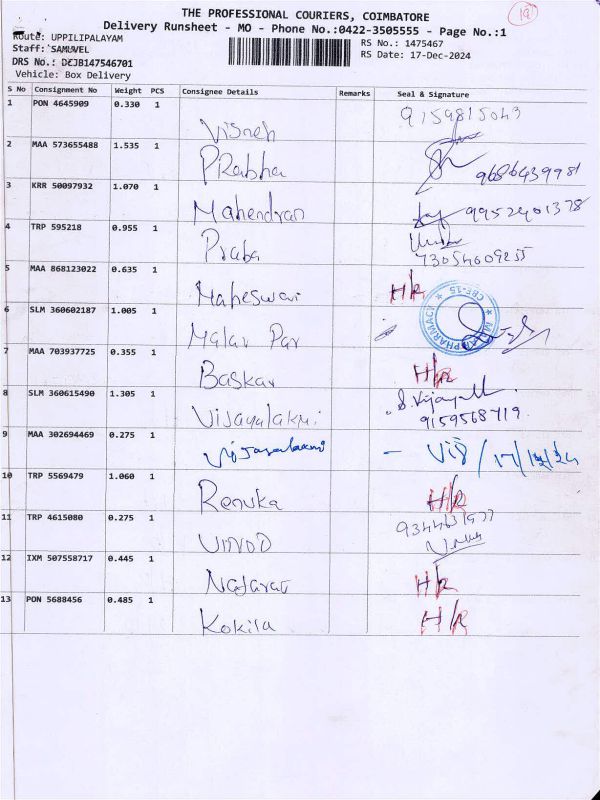 THE PROFESSIONAL COURIERS, COIMBATORE
19
Delivery Runsheet - MO - Phone No.:0422-3505555 - Page No.:1
Route: UPPILIPALAYAM
RS No.: 1475467
Staff: SAMUVEL
RS Date: 17-Dec-2024
DRS No.: DCJB147546701
Vehicle: Box Delivery
S No Consignment No Weight PCS Consignee Details Remarks Seal & Signature
1 PON 4645909 0.330 1 Visneh 9159815043
2 MAA 573655488 1.535 1 PRabha 9686439981
3 KRR 50097932 1.070 1 Mahendran 9952401378
4 TRP 595218 0.955 1 Praba 73054609255
5 MAA 868123022 0.635 1 Maheswari H/R
6 SLM 360602187 1.005 1 Malar Par PHARMACY CBE-15
7 MAA 703937725 0.355 1 Baskar H/R
8 SLM 360615490 1.305 1 Vijayalakmi S. Vijayalak
9159568719
9 MAA 302694469 0.275 1 Vijayalaxmi - Vij / 17/12/24
10 TRP 5569479 1.060 1 Renuka H/R
11 TRP 4615080 0.275 1 VINOD
12 IXM 507558717 0.445 1 Nagaraj H/R
13 PON 5688456 0.485 1 Kokila H/R